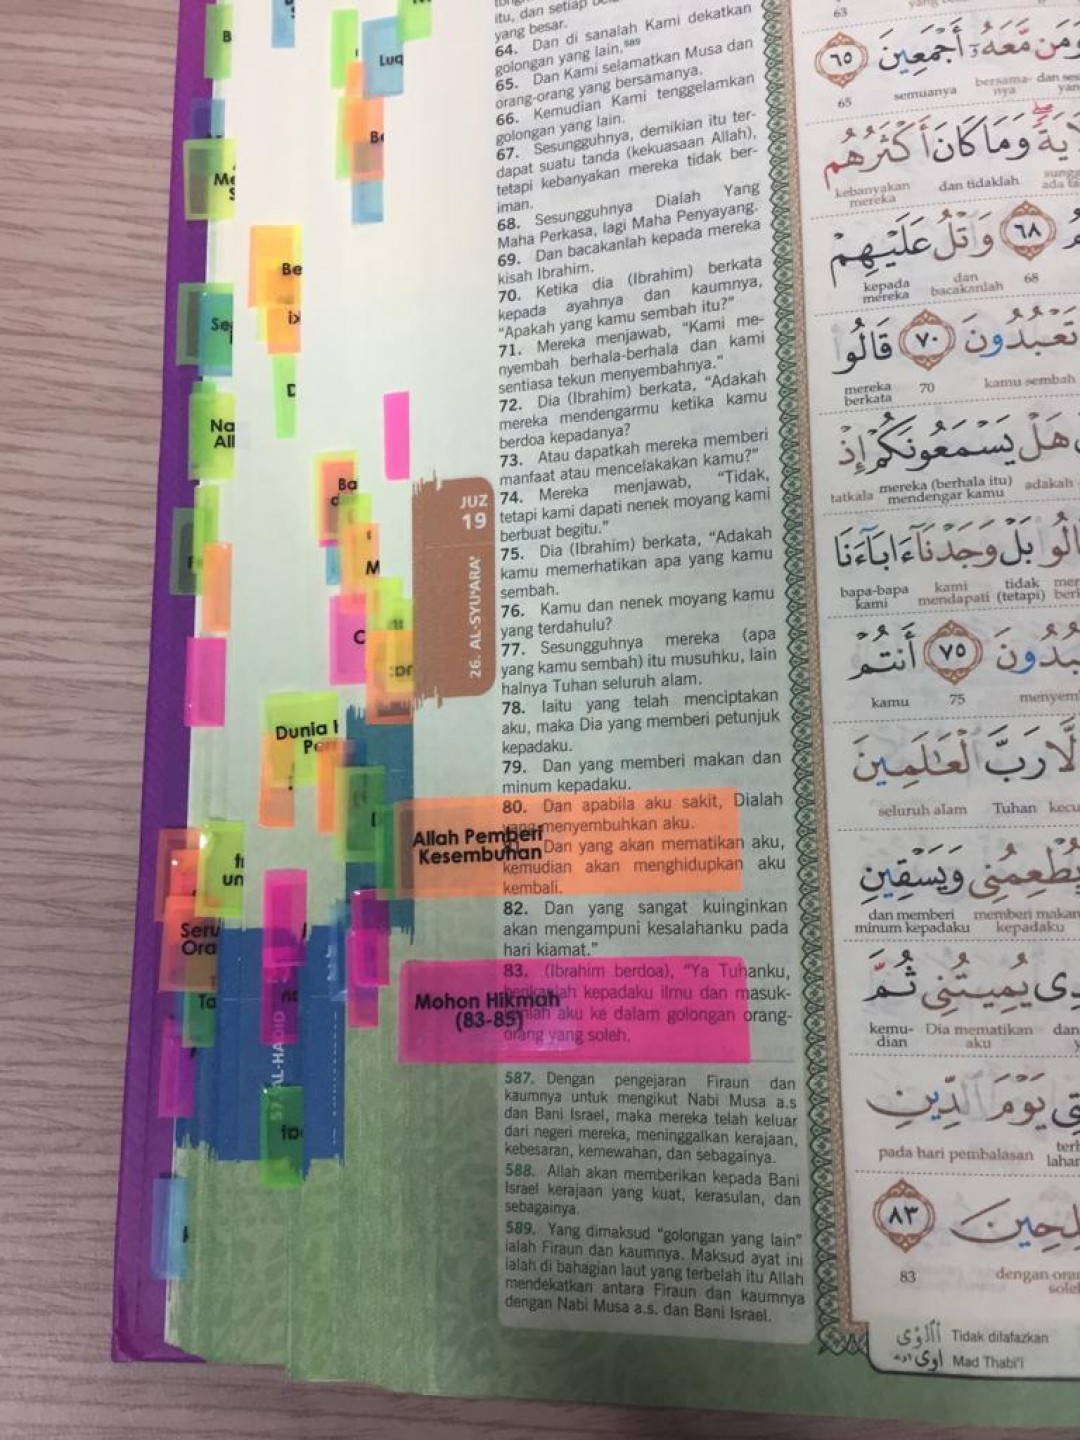 itu, dan setiap
yang besar.
64. Dan di sanalah Kami dekatkan
golongan yang lain.⁵⁸⁹
65. Dan Kami selamatkan Musa dan
orang-orang yang bersamanya.
66. Kemudian Kami tenggelamkan
golongan yang lain.
67. Sesungguhnya, demikian itu ter-
dapat suatu tanda (kekuasaan Allah),
tetapi kebanyakan mereka tidak ber-
iman.
68. Sesungguhnya Dialah Yang
Maha Perkasa, lagi Maha Penyayang.
69. Dan bacakanlah kepada mereka
kisah Ibrahim.
70. Ketika dia (Ibrahim) berkata
kepada ayahnya dan kaumnya,
“Apakah yang kamu sembah itu?”
71. Mereka menjawab, “Kami me-
nyembah berhala-berhala dan kami
sentiasa tekun menyembahnya.”
72. Dia (Ibrahim) berkata, “Adakah
mereka mendengarmu ketika kamu
berdoa kepadanya?
73. Atau dapatkah mereka memberi
manfaat atau mencelakakan kamu?”
74. Mereka menjawab, “Tidak,
tetapi kami dapati nenek moyang kami
berbuat begitu.”
75. Dia (Ibrahim) berkata, “Adakah
kamu memerhatikan apa yang kamu
sembah.
76. Kamu dan nenek moyang kamu
yang terdahulu?
77. Sesungguhnya mereka (apa
yang kamu sembah) itu musuhku, lain
halnya Tuhan seluruh alam.
78. Iaitu yang telah menciptakan
aku, maka Dia yang memberi petunjuk
kepadaku.
79. Dan yang memberi makan dan
minum kepadaku.
80. Dan apabila aku sakit, Dialah
yang menyembuhkan aku.
Dan yang akan mematikan aku,
kemudian akan menghidupkan aku
kembali.
82. Dan yang sangat kuinginkan
akan mengampuni kesalahanku pada
hari kiamat.”
83. (Ibrahim berdoa), “Ya Tuhanku,
berikanlah kepadaku ilmu dan masuk-
kanlah aku ke dalam golongan orang-
orang yang soleh.
587. Dengan pengejaran Firaun dan
kaumnya untuk mengikut Nabi Musa a.s
dan Bani Israel, maka mereka telah keluar
dari negeri mereka, meninggalkan kerajaan,
kebesaran, kemewahan, dan sebagainya.
588. Allah akan memberikan kepada Bani
Israel kerajaan yang kuat, kerasulan, dan
sebagainya.
589. Yang dimaksud “golongan yang lain”
ialah Firaun dan kaumnya. Maksud ayat ini
ialah di bahagian laut yang terbelah itu Allah
mendekatkan antara Firaun dan kaumnya
dengan Nabi Musa a.s. dan Bani Israel.
JUZ
19
26. AL-SYU'ARA'
Allah Pemberi
Kesembuhan
Mohon Hikmah
(83-85)
Luq
Be
Dunia
Seru
Ora
57. AL-HADID
63
وَمَن مَّعَهُۥٓ أَجْمَعِينَ ٦٥
bersama-nya
semuanya
65
وَمَا كَانَ أَكْثَرُهُم
dan tidaklah
kebanyakan mereka
٦٨ وَاتْلُ عَلَيْهِمْ
68
dan bacakanlah
kepada mereka
تَعْبُدُونَ ٧٠ قَالُوا
kamu sembah
70
mereka berkata
هَلْ يَسْمَعُونَكُمْ إِذْ
adakah
mereka (berhala itu) mendengar kamu
tatkala
بَلْ وَجَدْنَآ ءَابَآءَنَا
tidak (tetapi)
kami mendapati
bapa-bapa kami
٧٥ أَنتُمْ
75
kamu
لَّا رَبَّ الْعَٰلَمِينَ
Tuhan
seluruh alam
يُطْعِمُنِى وَيَسْقِينِ
memberi makan kepadaku
dan memberi minum kepadaku
يُمِيتُنِى ثُمَّ
Dia mematikan aku
kemu-dian
يَوْمَ الدِّينِ
pada hari pembalasan
٨٣
83
Tidak dilafazkan
Mad Thabi'i